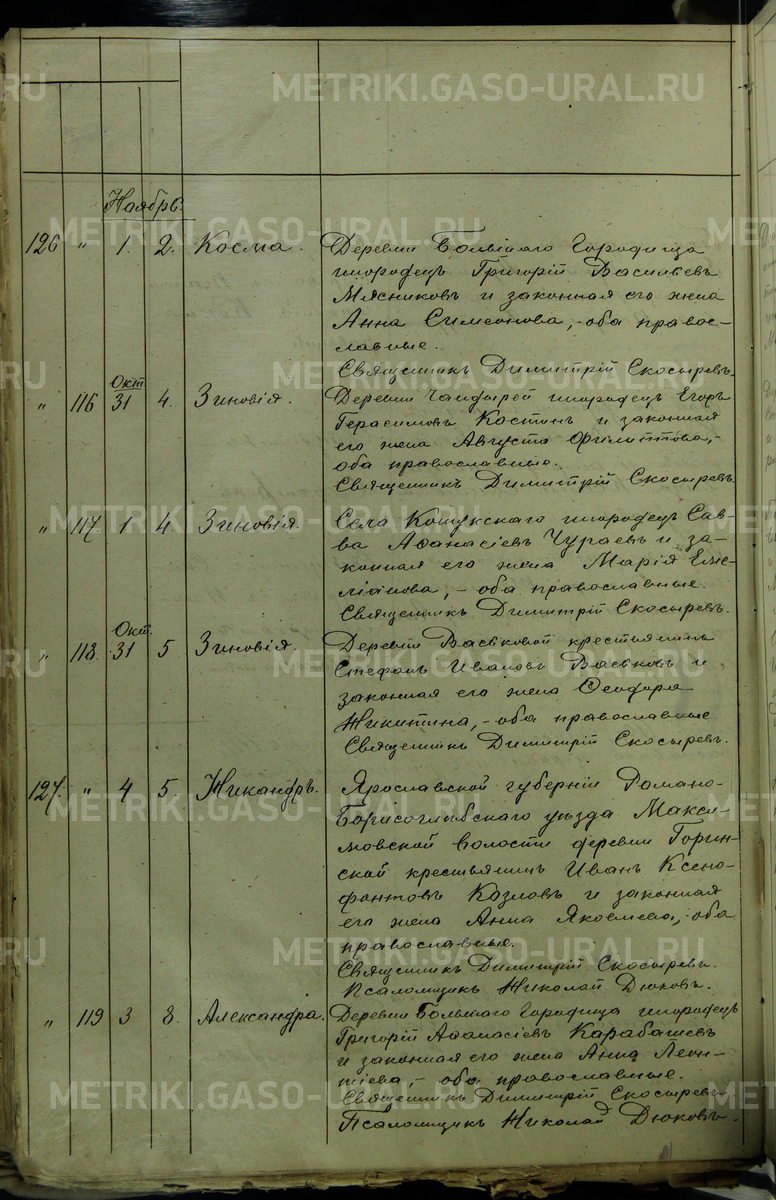 METRIKI.GASO-URAL.RU
Ноябрь.
126 " 1. 2. Косма.
Деревни Большаго Городища
инородецъ Григорій Васильевъ
Мясниковъ и законная его жена
Анна Симеонова,- оба право-
славные.
Священникъ Димитрій Скосыревъ.
" 116 Окт. 31 4. Зиновія.
Деревни Чандырей инородецъ Егоръ
Герасимовъ Костинъ и законная
его жена Августа Филиппова,-
оба православные.
Священникъ Димитрій Скосыревъ.
" 117. 1 4. Зиновія.
Села Кошукскаго инородецъ Сав-
ва Аѳанасіевъ Чураевъ и за-
конная его жена Марія Еме-
ліанова,- оба православные.
Священникъ Димитрій Скосыревъ.
" 118. Окт. 31 5. Зиновія.
Деревни Васьковой крестьянинъ
Стефанъ Ивановъ Васьковъ и
законная его жена Ѳеодора
Никитина,- оба православные
Священникъ Димитрій Скосыревъ.
127. " 4 5. Никандръ.
Ярославской губерніи Романо-
Борисоглѣбскаго уѣзда Макси-
мовской волости деревни Горин-
ской крестьянинъ Иванъ Ксено-
фонтовъ Козловъ и законная
его жена Анна Яковлева,- оба
православные.
Священникъ Димитрій Скосыревъ.
Псаломщикъ Николай Дюковъ.
" 119 3 8. Александра.
Деревни Большаго Городища инородецъ
Григорій Аѳанасіевъ Карабашевъ
и законная его жена Анна Леон-
тіева,- оба православные.
Священникъ Димитрій Скосыревъ.
Псаломщикъ Николай Дюковъ.